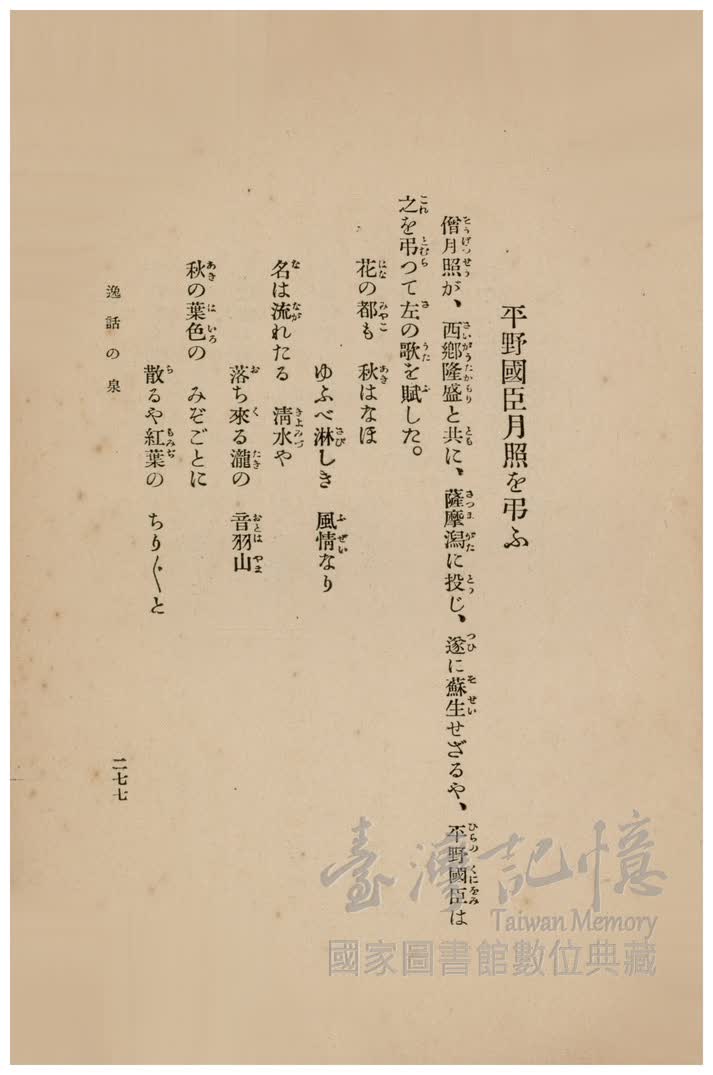 平野國臣月照を弔ふ
僧月照が、西鄕隆盛と共に、薩摩潟に投じ、遂に蘇生せざるや、平野國臣は
之を弔つて左の歌を賦した。
花の都も　秋はなほ
ゆふべ淋しき　風情なり
名は流れたる　淸水や
落ち來る瀧の　音羽山
秋の葉色の　みぞごとに
散るや紅葉の　ちり〲と
逸話の泉
二七七
臺灣記憶
Taiwan Memory
國家圖書館數位典藏